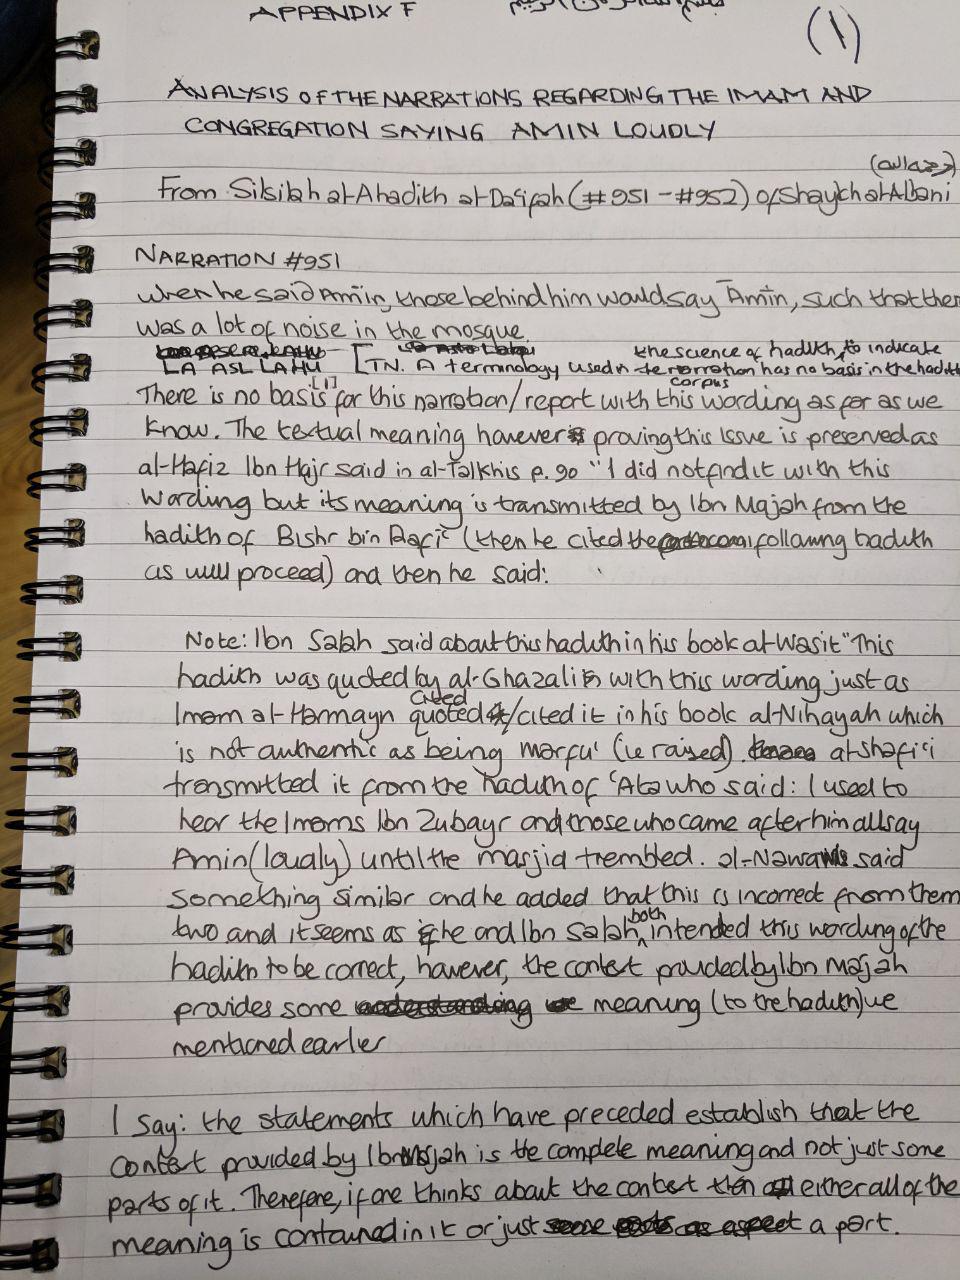 APPENDIX F
(1)
ANALYSIS OF THE NARRATIONS REGARDING THE IMAM AND
CONGREGATION SAYING AMIN LOUDLY
(رحمه الله)
From Silsilah al-Ahadith al-Da'ifah (#951 - #952) of Shaykh al-Albani
NARRATION #951
When he said Amin, those behind him would say Amin, such that ther
was a lot of noise in the mosque.
the science of hadith, to indicate
LA ASL LAHU [TN. A terminology used in the narration has no basis in the hadith
[1] corpus
There is no basis for this narration/report with this wording as far as we
know. The textual meaning however proving this issue is preserved as
al-Hafiz Ibn Hajr said in al-Talkhis p.90 "I did not find it with this
wording but its meaning is transmitted by Ibn Majah from the
hadith of Bishr bin Rafi' (then he cited the following hadith
as will proceed) and then he said:
Note: Ibn Salah said about this hadith in his book al-Wasit "This
hadith was quoted by al-Ghazali with this wording just as
cited
Imam al-Harmayn quoted/cited it in his book al-Nihayah which
is not authentic as being marfu' (ie raised). al-Shafi'i
transmitted it from the hadith of 'Ata who said: I used to
hear the Imams Ibn Zubayr and those who came after him all say
Amin (loudly) until the masjid trembled. al-Nawawi said
something similar and he added that this is incorrect from them
both
two and it seems as if he and Ibn Salah intended this wording of the
hadith to be correct, however, the context provided by Ibn Majah
provides some meaning (to the hadith) we
mentioned earlier
I say: the statements which have preceded establish that the
context provided by Ibn Majah is the complete meaning and not just some
parts of it. Therefore, if one thinks about the context either all of the
meaning is contained in it or just a part.